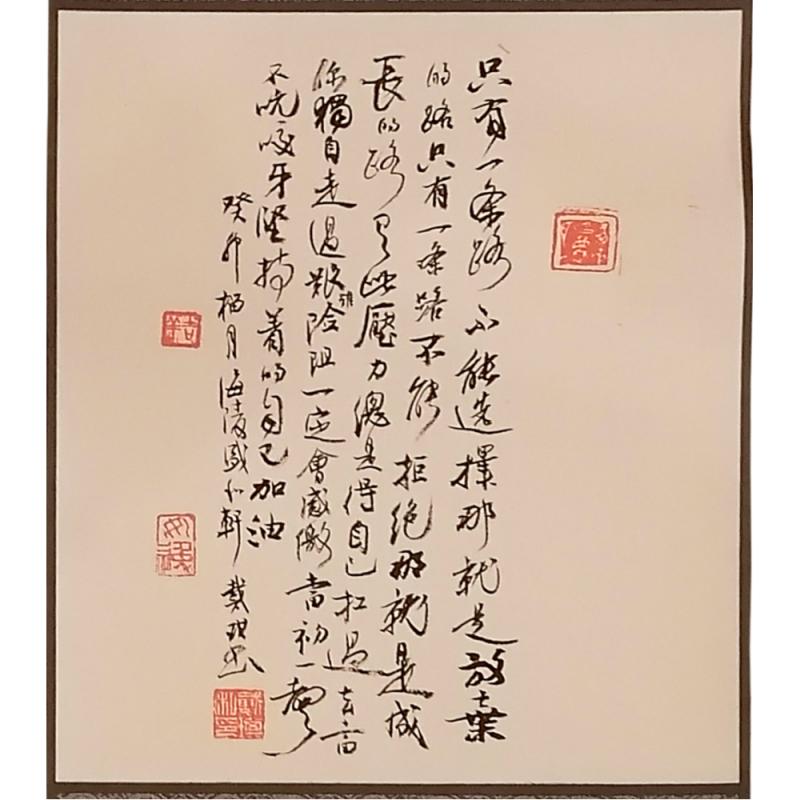 只有一条路不能选擇那就是放棄
的路只有一条路不能拒绝那就是成
長的路有些壓力總是得自己扛過去當
你獨自走過艰難险阻一定會感激當初一聲
不吭咬牙坚持着的自己加油
癸卯楠月海陵感和軒戴琪书